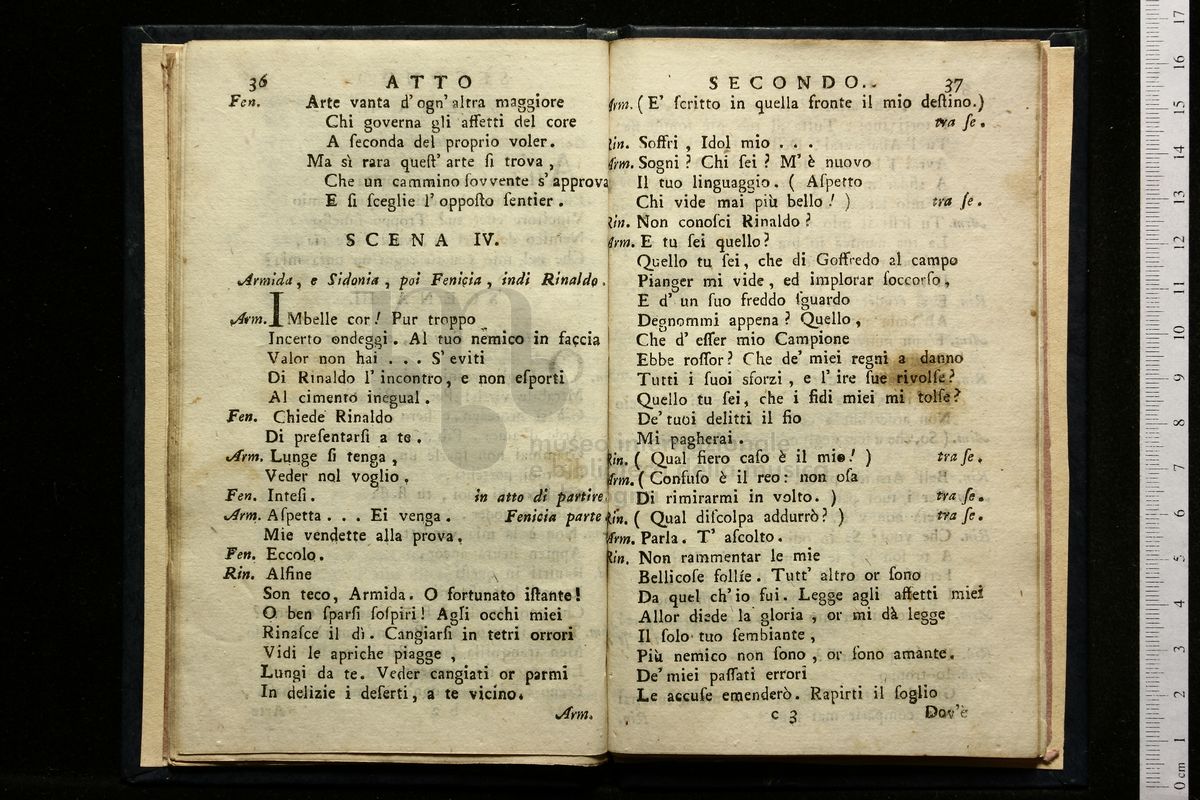 36 ATTO
Fen. Arte vanta d' ogn' altra maggiore
Chi governa gli affetti del core
A ſeconda del proprio voler.
Ma sì rara queſt' arte ſi trova,
Che un cammino ſovvente s' approva
E ſi ſceglie l' oppoſto ſentier.
SCENA IV.
Armida, e Sidonia, poi Fenicia, indi Rinaldo.
Arm. IMbelle cor! Pur troppo
Incerto ondeggi. Al tuo nemico in faccia
Valor non hai . . . S' eviti
Di Rinaldo l' incontro, e non eſporti
Al cimento inegual.
Fen. Chiede Rinaldo
Di preſentarſi a te.
Arm. Lunge ſi tenga,
Veder nol voglio.
Fen. Inteſi. in atto di partire
Arm. Aſpetta . . . Ei venga. Fenicia parte.
Mie vendette alla prova.
Fen. Eccolo.
Rin. Alfine
Son teco, Armida. O fortunato iſtante!
O ben ſparſi ſoſpiri! Agli occhi miei
Rinaſce il dì. Cangiarſi in tetri orrori
Vidi le apriche piagge,
Lungi da te. Veder cangiati or parmi
In delizie i deſerti, a te vicino.
Arm.
SECONDO. 37
Arm. (E' ſcritto in quella fronte il mio deſtino.)
tra ſe.
Rin. Soffri, Idol mio . . .
Arm. Sogni? Chi ſei? M' è nuovo
Il tuo linguaggio. (Aſpetto
Chi vide mai più bello!) tra ſe.
Rin. Non conoſci Rinaldo?
Arm. E tu ſei quello?
Quello tu ſei, che di Goffredo al campo
Pianger mi vide, ed implorar ſoccorſo,
E d' un ſuo freddo ſguardo
Degnommi appena? Quello,
Che d' eſſer mio Campione
Ebbe roſſor? Che de' miei regni a danno
Tutti i ſuoi sforzi, e l' ire ſue rivolſe?
Quello tu ſei, che i fidi miei mi tolſe?
De' tuoi delitti il fio
Mi pagherai.
Rin. (Qual fiero caſo è il mio!) tra ſe.
Arm. (Confuſo è il reo: non oſa
Di rimirarmi in volto.) tra ſe.
Rin. (Qual diſcolpa addurrò?) tra ſe.
Arm. Parla. T' aſcolto.
Rin. Non rammentar le mie
Bellicoſe follie. Tutt' altro or ſono
Da quel ch' io fui. Legge agli affetti miei
Allor diede la gloria, or mi dà legge
Il ſolo tuo ſembiante,
Più nemico non ſono, or ſono amante.
De' miei paſſati errori
Le accuſe emenderò. Rapirti il ſoglio
c 3 Dov'è
museo internazionale
e biblioteca della musica